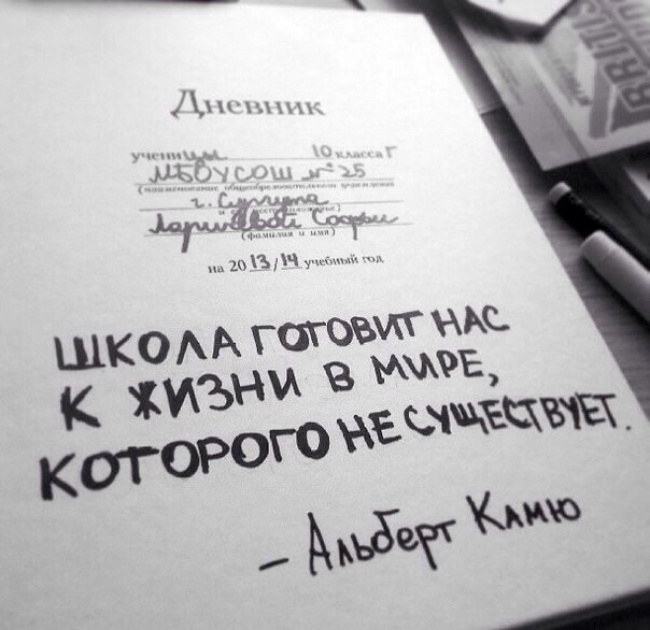 Дневник
ученицы 10 класса Г
МБОУСОШ №25
(наименование общеобразовательного учреждения
г. Сургута
(фамилия и имя)
на 2013/14 учебный год
ШКОЛА ГОТОВИТ НАС
К ЖИЗНИ В МИРЕ,
КОТОРОГО НЕ СУЩЕСТВУЕТ.
– Альберт Камю